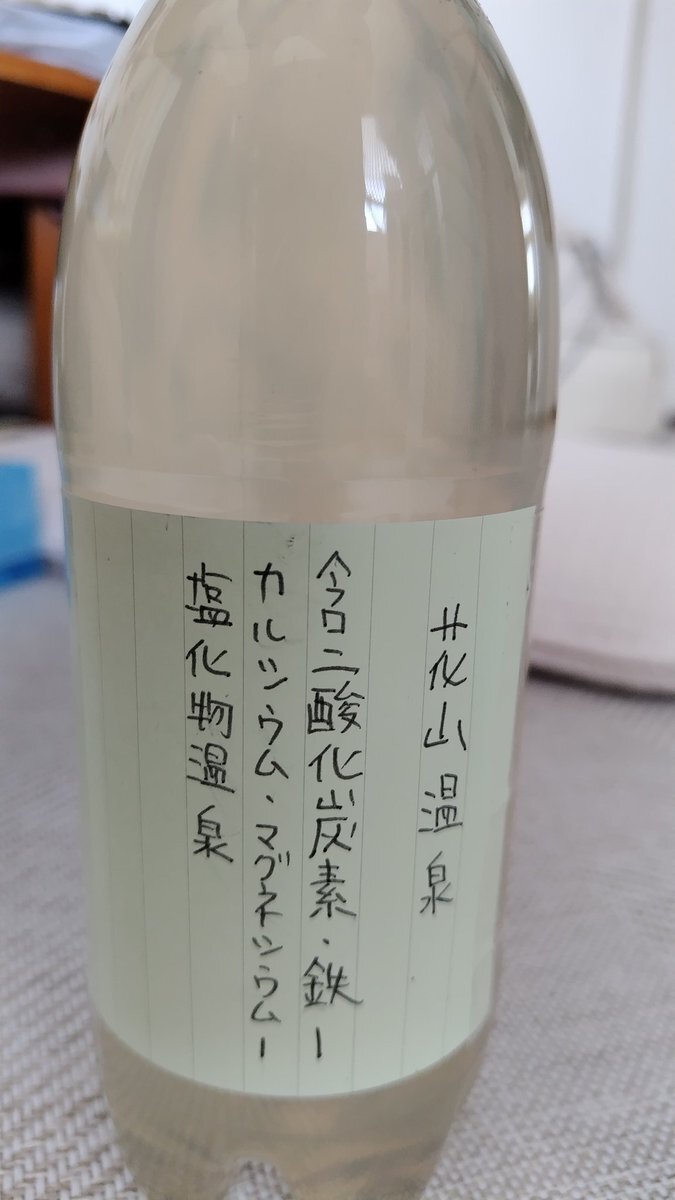 花山温泉
含二酸化炭素・鉄ー
カルシウム・マグネシウムー
塩化物温泉